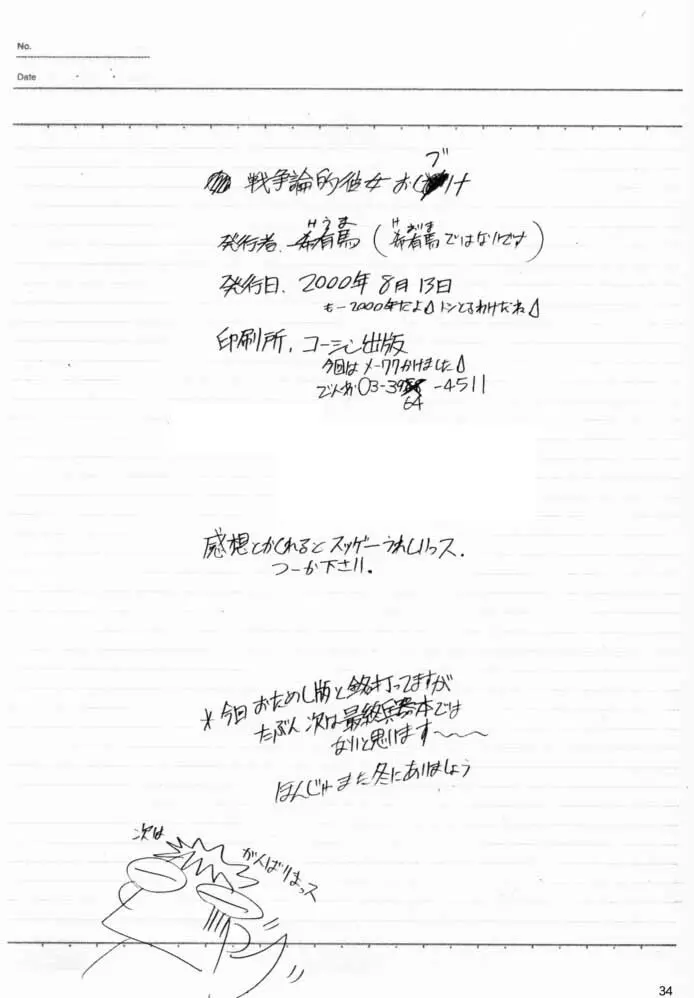 No.
Date
ブ
戦争論的彼女 おし け
けうま
け おうま
発行者. 希有馬 (希有馬ではないです)
発行日. 2000年 8月 13日
もー2000年だよ トンとるわけだね
印刷所. コーシン出版
今回はメーワクかけました
でんわ03-39 -4511
64
感想とかくれるとスッゲーうれしいっス.
つーか下さい.
*今日 おためし版と銘打ってますが
たぶん次は最終兵器本では
ないと思います〜〜〜
ほんじゃまた冬にあいましょう
次は
がんばりまっス
34